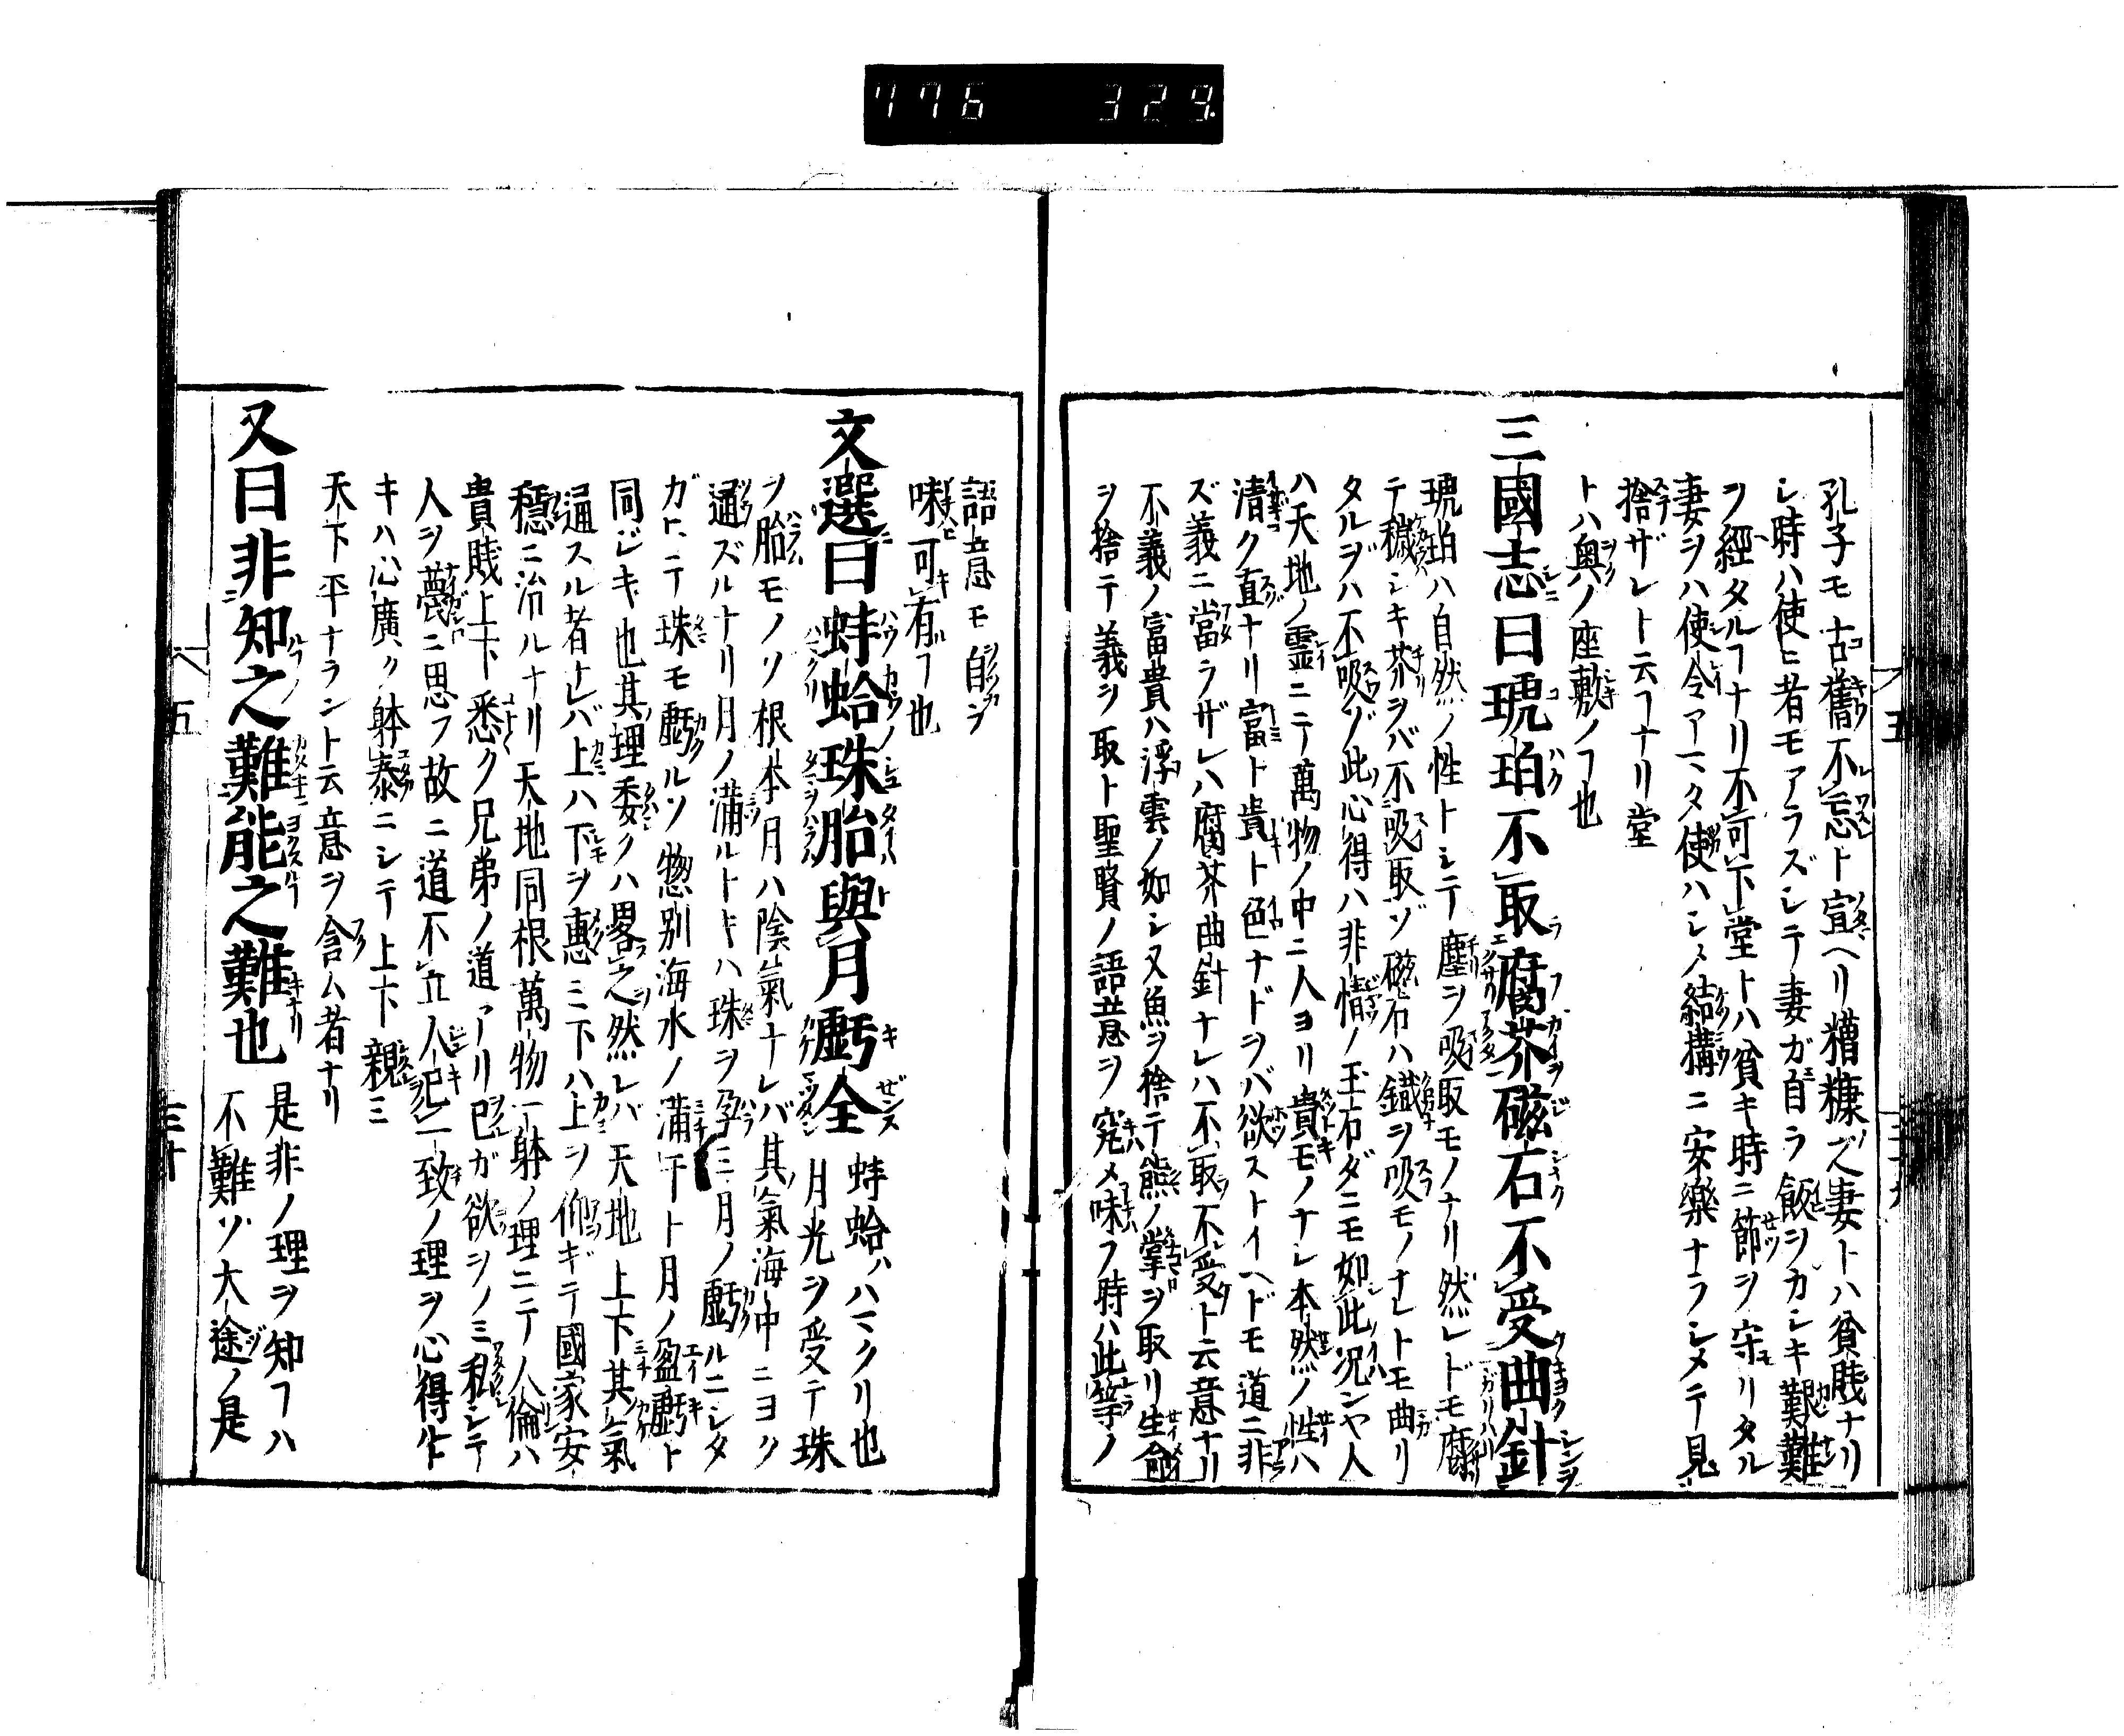 776 329
孔子モ古舊不忘ト宣ヘリ糟糠之妻トハ貧賤ナリ
シ時ハ使ヒ者モアラズシテ妻ガ自ラ飯ヲカシキ艱難
ヲ經タルヿナリ不可下堂トハ貧キ時ニ節ヲ守リタル
妻ヲハ使令アマタ使ハシメ結構ニ安樂ナラシメテ見
捨ザレト云ヿナリ堂
トハ奧ノ座敷ノヿ也
三國志曰琥珀不取腐芥磁石不受曲針
琥珀ハ自然ノ性トシテ塵ヲ吸取モノナリ然レドモ腐
テ穢シキ芥ヲバ不吸取ゾ磁石ハ鐵ヲ吸モノナレトモ曲リ
タルヲハ不吸ゾ此心得ハ非情ノ玉石ダニモ如此况ンヤ人
ハ天地ノ靈ニテ萬物ノ中ニ人ヨリ貴モノナシ本然ノ性ハ
清ク直ナリ富ト貴ト色ナドヲバ欲ストイヘドモ道ニ非
ズ義ニ當ラザレハ腐芥曲針ナレハ不取不受ト云意ナリ
不義ノ富貴ハ浮雲ノ如シ又魚ヲ捨テ熊ノ掌ヲ取リ生命
ヲ捨テ義ヲ取ト聖賢ノ語意ヲ究メ味フ時ハ此等ノ
語意モ自ヲ
味可有ヿ也
文選曰蚌蛤珠胎與月虧全
蚌蛤ハハマクリ也
月光ヲ受テ珠
ヲ胎モノソ根本月ハ陰氣ナレバ其氣海中ニヨク
通ズルナリ月ノ滿ルトキハ珠ヲ孕ミ月ノ虧ルニシタ
ガヒテ珠モ虧ルソ惣別海水ノ滿干ト月ノ盈虧ト
同ジキ也其理委クハ畧之然レバ天地上下其氣
通スル者ナレバ上ハ下ヲ惠ミ下ハ上ヲ仰ギテ國家安
穩ニ治ルナリ天地同根萬物一躰ノ理ニテ人倫ハ
貴賤上下悉ク兄弟ノ道アリ己ガ欲シノミ私シテ
人ヲ蔑ニ思フ故ニ道不立人己一致ノ理ヲ心得ルト
キハ心廣ク躰泰ニシテ上下親ミ
天下平ナラント云意ヲ含ム者ナリ
又曰非知之難能之難也
是非ノ理ヲ知ヿハ
不難ソ大途ノ是
五
三十